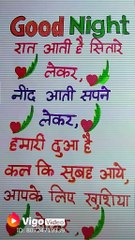 Good Night
रात आती है सितारे
लेकर,
नींद आती सपने
लेकर,
हमारी दुआ है
कल कि सुबह आये,
आपके लिए खुशिया
Vigo Video